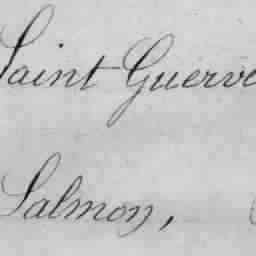 Saint Guerve
Salmon,